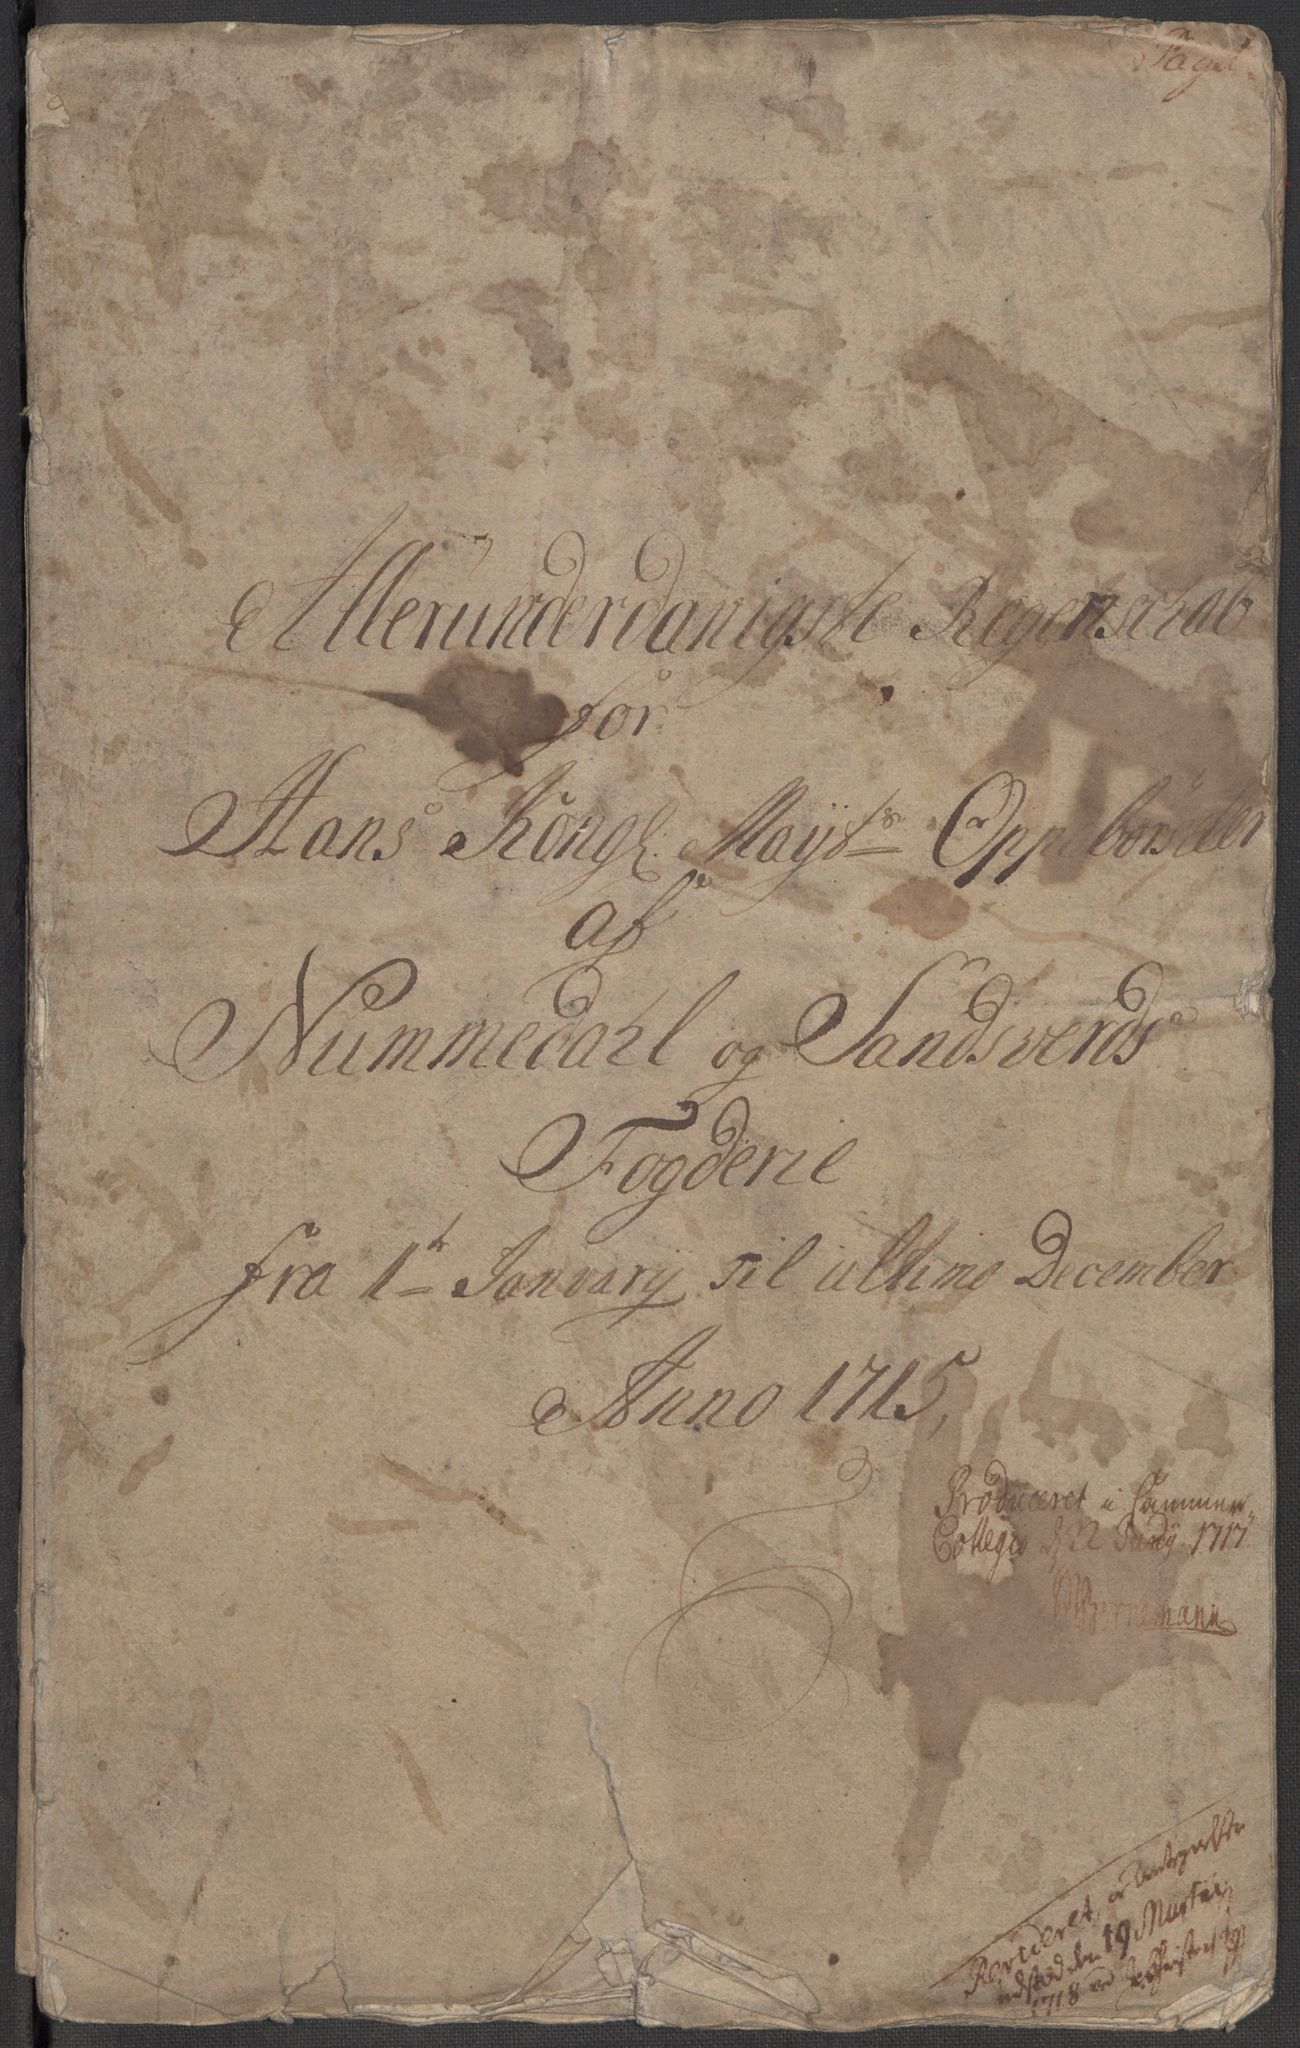 Allerunderdanigste Regenschab
for
Hans Kongl. Mayts Oppebørseler
af
Nummedahl og Sandsverds
Fogderie
fra 1te January til ultimo December
Anno 1715,
Produceret i Cammer
Collegio d 22 Juny 1717
Bornemann
Revideret, og
udsted den 19 Martij
1718